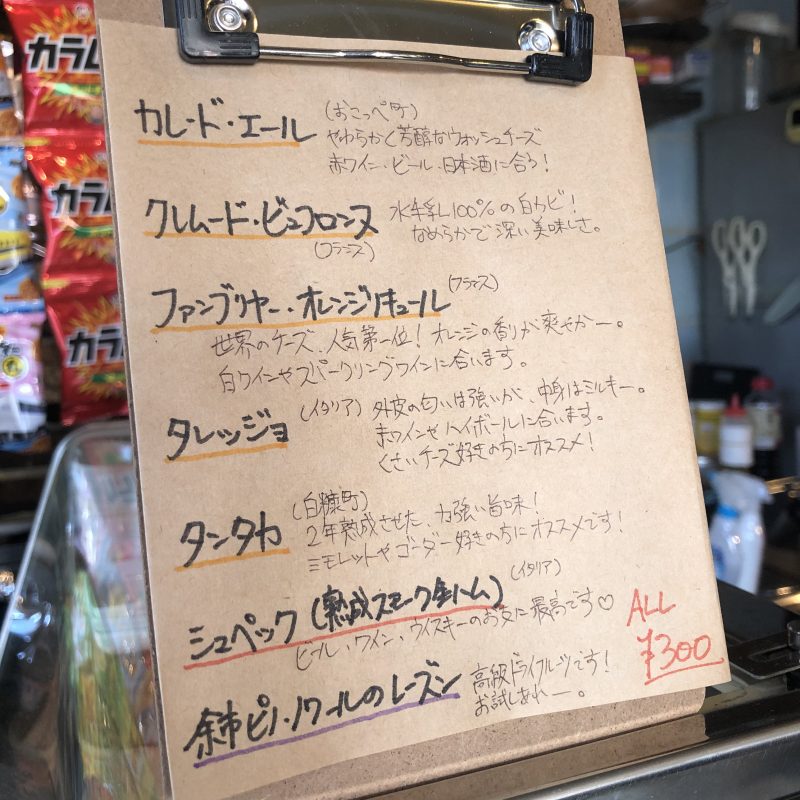 カラム
カレ・ド・エール (おこっぺ町)
やわらかく芳醇なウォッシュチーズ
赤ワイン・ビール・日本酒に合う!
クレムード・ビュフロンヌ (フランス)
水牛乳100%の白カビ!
なめらかで深い美味しさ。
ファンブリヤー・オレンジリキュール (フランス)
世界のチーズ、人気第一位!オレンジの香りが爽やかー。
白ワインやスパークリングワインに合います。
タレッジョ (イタリア) 外皮の匂いは強いが、中身はミルキー。
赤ワインやハイボールに合います。
くさいチーズ好きの方にオススメ!
タンタカ (白糠町)
2年熟成させた、力強い旨味!
ミモレットやゴーダー好きの方にオススメです!
シュペック(熟成スモーク生ハム) (イタリア)
ビール、ワイン、ウイスキーのお友に最高です♡
余市ピノ・ノワールのレーズン 高級ドライフルーツです!
お試しあれー。
ALL
¥300